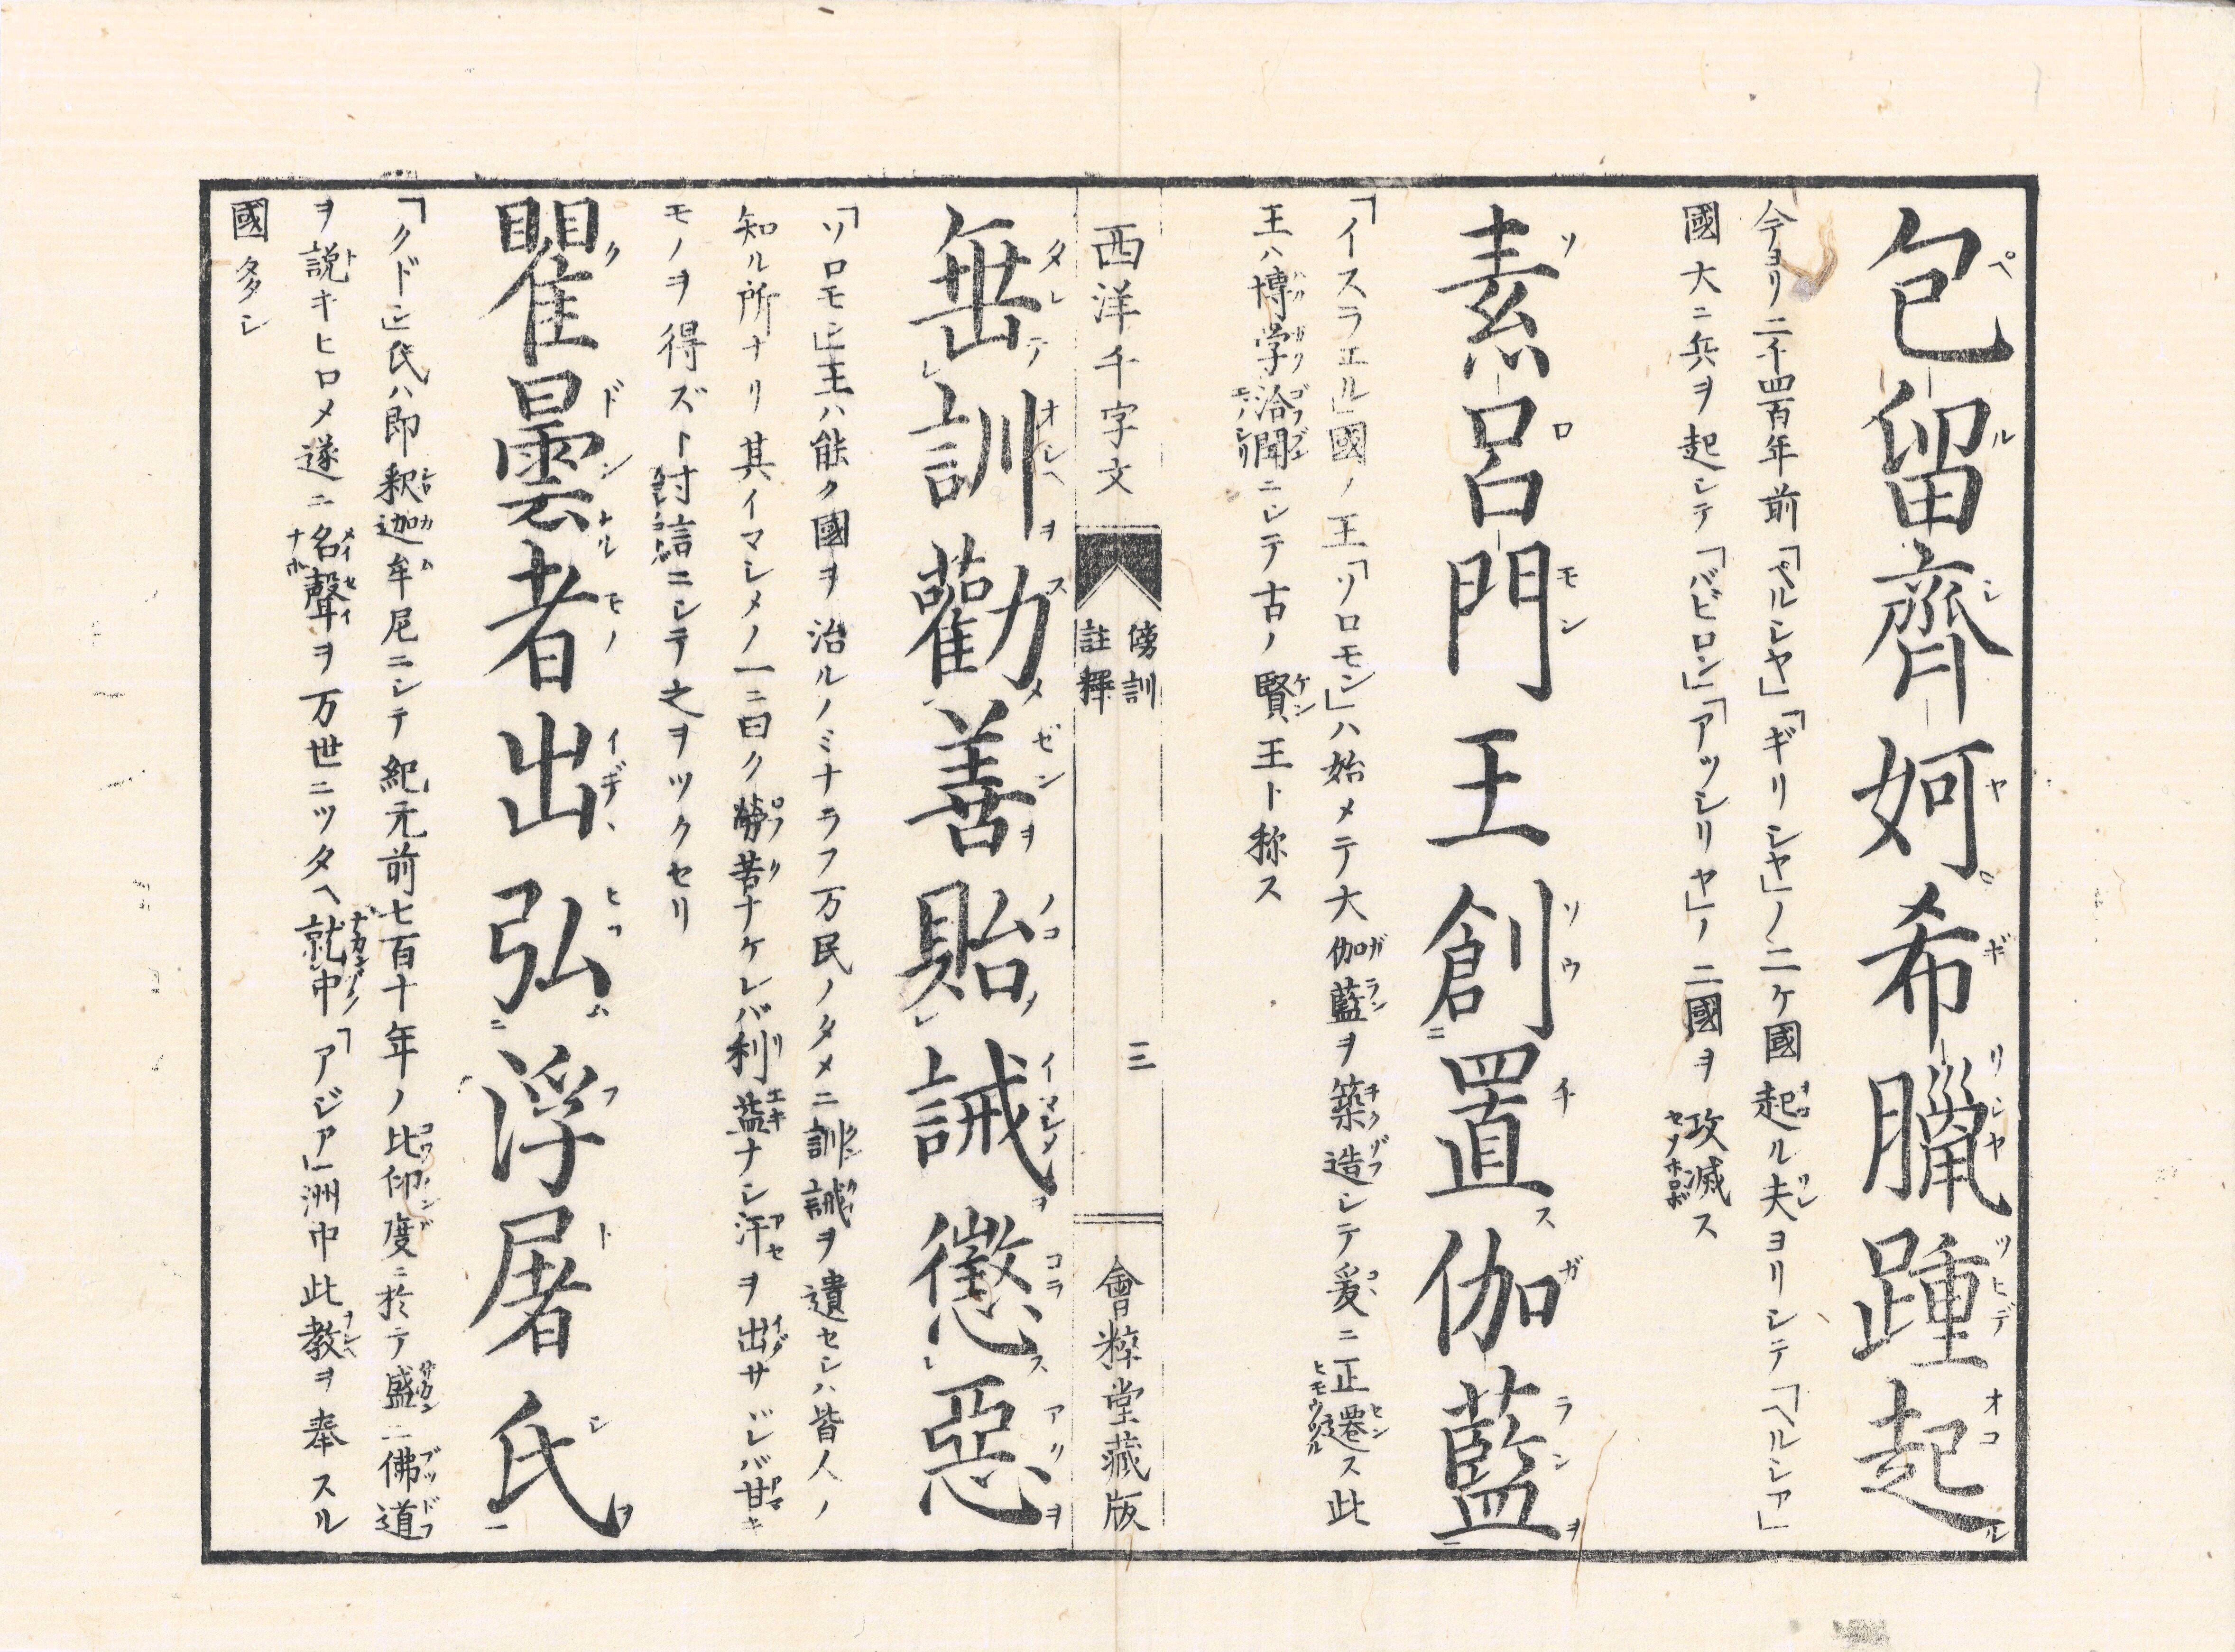 包留齊妸希臘踵起
今ヨリ二千四百年前「ペルシヤ」「ギリシヤ」ノ二ケ國起ル夫ヨリシテ「ヘルシア」
國大ニ兵ヲ起シテ「バビロン」「アツシリヤ」ノ二國ヲ攻滅ス
素呂門王創置伽藍
「イスラエル」國ノ王「ソロモン」ハ始メテ大伽藍ヲ築造シテ爰ニ正遷ス此
王ハ博学洽聞ニシテ古ノ賢王ト称ス
西洋千字文
傍訓
註釋
三
會粹堂藏版
垂訓勸善貽誡懲惡
「ソロモン」王ハ能ク國ヲ治ルノミナラフ万民ノタメニ訓誡ヲ遺セシハ皆人ノ
知ル所ナリ其イマシメノ一ニ曰ク勞苦ナケレバ利益ナシ汗ヲ出サヾレバ甘キ
モノヲ得ズト討信ニシテ之ヲツクセリ
瞿曇者出弘浮屠氏
「クドン」氏ハ即釈迦牟尼ニシテ紀元前七百十年ノ比印度ニ於テ盛ニ佛道
ヲ説キヒロメ遂ニ名聲ヲ万世ニツタヘ就中「アジア」洲中此教ヲ奉スル
國多シ